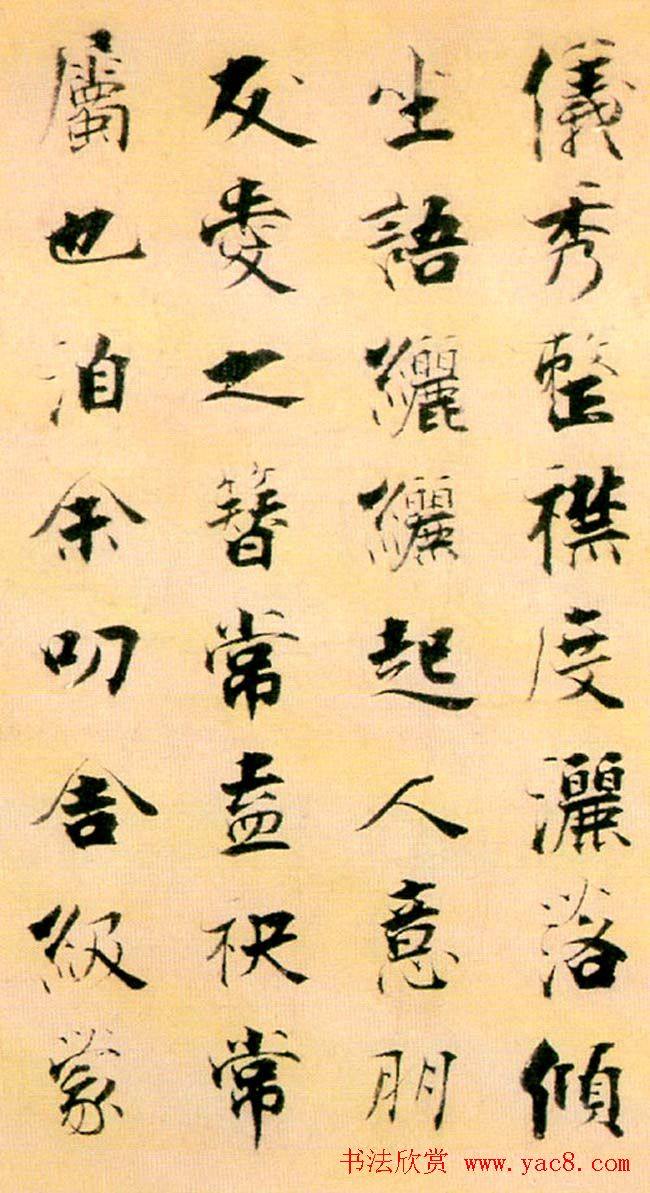 儀秀整襟度灑落傾
坐語纚纚起人意朋
友愛之簪常盍袂常
屬也洎余叨舍級蒙
书法欣赏 www.yac8.com